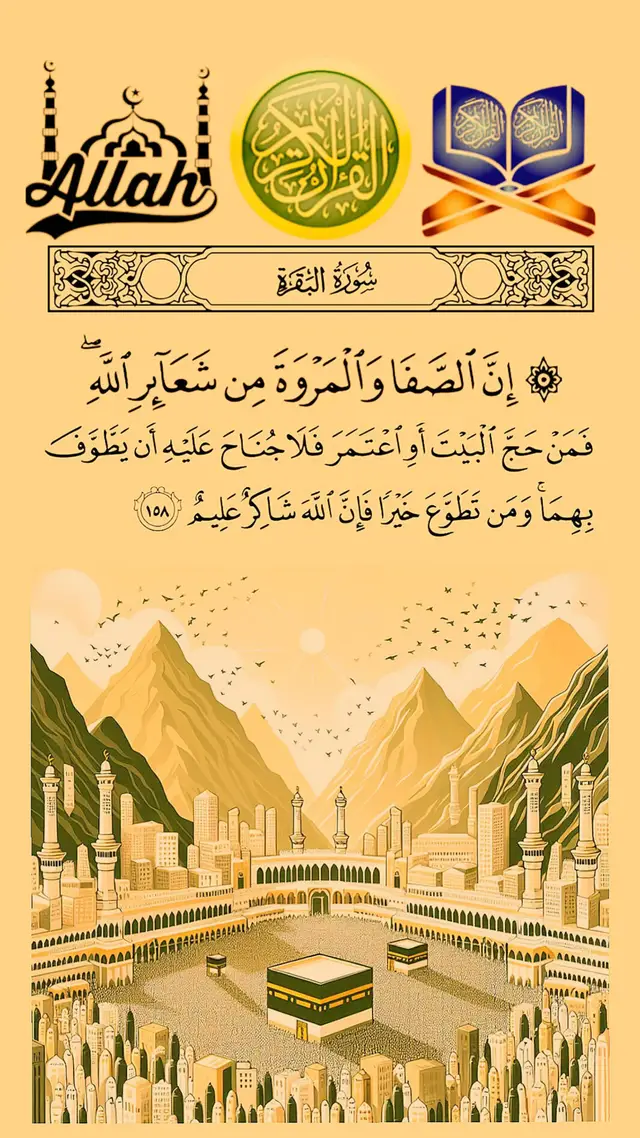 Allah
القرآن الكريم
القرآن الكريم
القرآن الكريم
سُورَةُ البَقَرَةِ
۞ إِنَّ ٱلصَّفَا وَٱلْمَرْوَةَ مِن شَعَآئِرِ ٱللَّهِۖ
فَمَنْ حَجَّ ٱلْبَيْتَ أَوِ ٱعْتَمَرَ فَلَا جُنَاحَ عَلَيْهِ أَن يَطَّوَّفَ
بِهِمَاۚ وَمَن تَطَوَّعَ خَيْرًا فَإِنَّ ٱللَّهَ شَاكِرٌ عَلِيمٌ ١٥٨